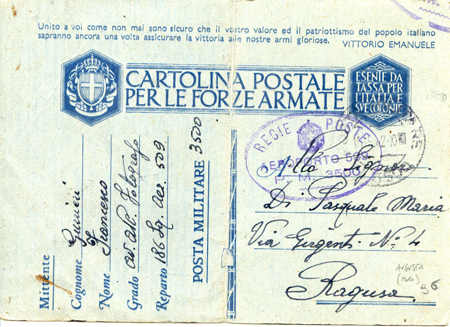 Unito a voi come non mai sono sicuro che il vostro valore ed il patriottismo del popolo italiano
sapranno ancora una volta assicurare la vittoria alle nostre armi gloriose. VITTORIO EMANUELE
CARTOLINA POSTALE
PER LE FORZE ARMATE
ESENTE DA
TASSA PER
L'ITALIA E
SVE COLONIE
REGIE POSTE
AEROPORTO 509
P. M. 3500
Mittente
Cognome
Nome Francesco
Grado av. all. fotografo
Reparto 186 Sq. Aer. 509
POSTA MILITARE 3500
Alla Signora
Di Pasquale Maria
Via Girgenti N. 4
Ragusa